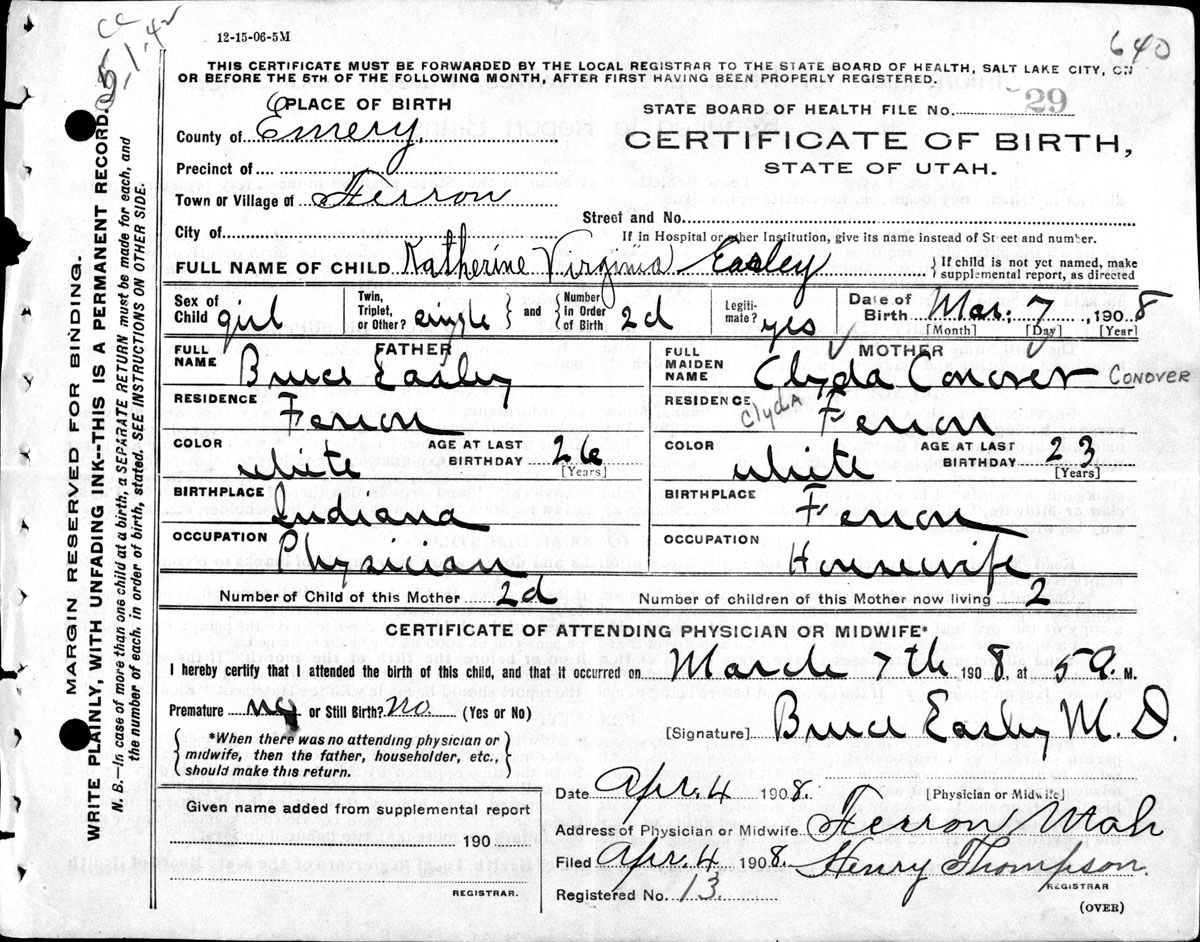 12-15-06-5M
640
THIS CERTIFICATE MUST BE FORWARDED BY THE LOCAL REGISTRAR TO THE STATE BOARD OF HEALTH, SALT LAKE CITY, ON
OR BEFORE THE 5TH OF THE FOLLOWING MONTH, AFTER FIRST HAVING BEEN PROPERLY REGISTERED.
MARGIN RESERVED FOR BINDING.
WRITE PLAINLY, WITH UNFADING INK--THIS IS A PERMANENT RECORD.
N. B.—In case of more than one child at a birth, a SEPARATE RETURN must be made for each, and
the number of each, in order of birth, stated. SEE INSTRUCTIONS ON OTHER SIDE.
PLACE OF BIRTH
STATE BOARD OF HEALTH FILE No. 29
County of Emery,
CERTIFICATE OF BIRTH,
STATE OF UTAH.
Precinct of
Town or Village of Ferron
Street and No.
City of
If in Hospital or other Institution, give its name instead of Street and number.
FULL NAME OF CHILD Katherine Virginia Easley
If child is not yet named, make
supplemental report, as directed
Sex of Child girl
Twin, Triplet, or Other? single and Number in Order of Birth 2d
Legiti-mate? yes
Date of Birth Mar. 7, 1908
[Month] [Day] [Year]
FATHER
FULL NAME Bruce Easley
MOTHER
FULL MAIDEN NAME Clyda Conover CONOVER
RESIDENCE Ferron
RESIDENCE Clyda Ferron
COLOR white AGE AT LAST BIRTHDAY 26 [Years]
COLOR white AGE AT LAST BIRTHDAY 23 [Years]
BIRTHPLACE Indiana
BIRTHPLACE Ferron
OCCUPATION Physician
OCCUPATION Housewife
Number of Child of this Mother 2d
Number of children of this Mother now living 2
CERTIFICATE OF ATTENDING PHYSICIAN OR MIDWIFE*
I hereby certify that I attended the birth of this child, and that it occurred on March 7th 1908, at 5 a. M.
Premature no or Still Birth? no. (Yes or No)
[Signature] Bruce Easley M.D.
*When there was no attending physician or
midwife, then the father, householder, etc.,
should make this return.
[Physician or Midwife]
Date Apr. 4 1908.
Given name added from supplemental report
190
REGISTRAR.
Address of Physician or Midwife Ferron Utah
Filed Apr. 4 1908. Henry Thompson.
REGISTRAR
Registered No. 13.
(OVER)